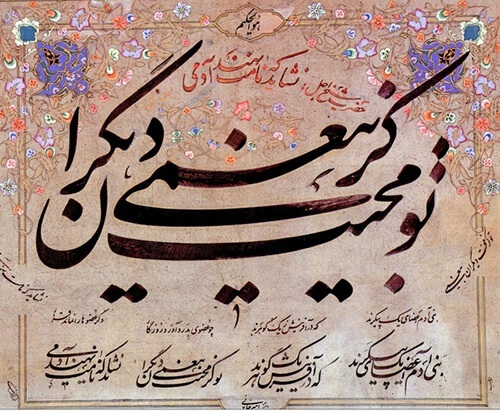 هو الحکیم
نشاید که نامت نهند آدمی
تو کز محنت دیگران بی‌غمی
بنی آدم اعضای یک پیکرند که در آفرینش ز یک گوهرند چو عضوی بدرد آورد روزگار دگر عضوها را نماند قرار
بنی آدم اعضای یک پیکرند که در آفرینش ز یک گوهرند تو کز محنت دیگران بی‌غمی نشاید که نامت نهند آدمی